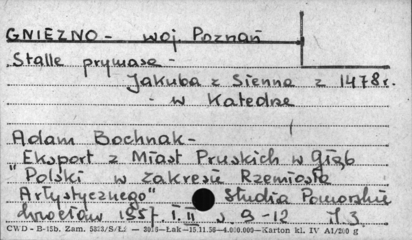 GNIEZNO - woj. Poznań
Stalle prymasa -
Jakuba z Sienna z 1478r.
- w Katedrze
Adam Bochnak -
"Eksport z Miast Pruskich w głąb
"Polski w zakresie Rzemiosła
Artystycznego" Studia Pomorskie
Wrocław 1957. I. II s. 9-12
CWD - B-15b. Zam. 5873/S/Ł1 — 3018 - Łak - 15.11.56 - 4.000.000 - Karton kl. IV A1/200 g